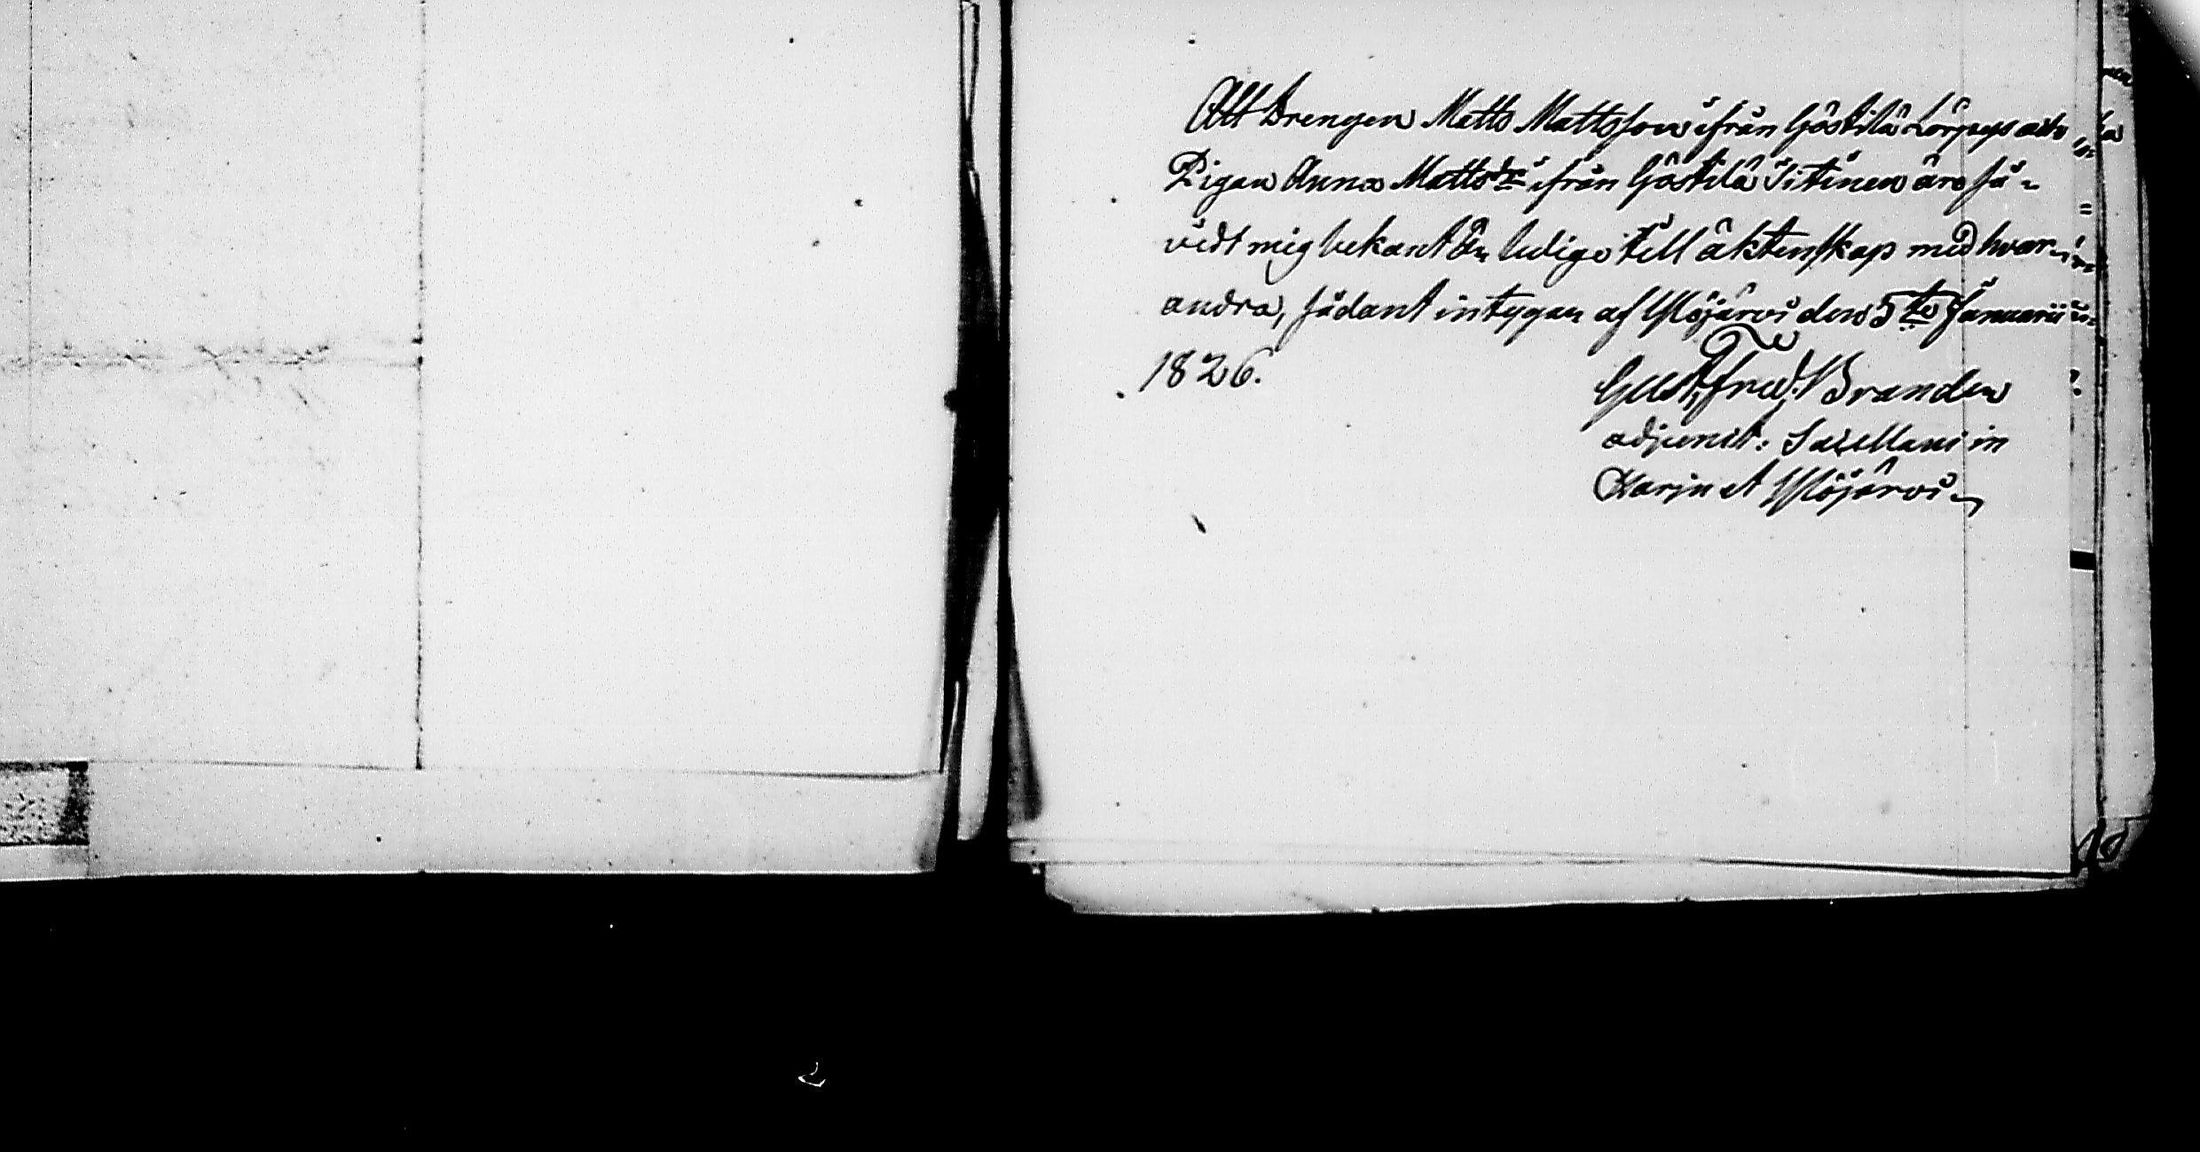 Att Drengen Matts Mattsson ifrån Göstilä Lörpys och
Pigan Anna Mattsdr ifrån Göstilä Iitinen äro så-
vidt mig bekant är ledige till äktenskap med hvar-
andra, sådant intygar af Ylöjärvi den 5te Januarii
1826.
Gust. Fred. Brander
adjunct: Sacellani in
Harju et Ylöjärvi